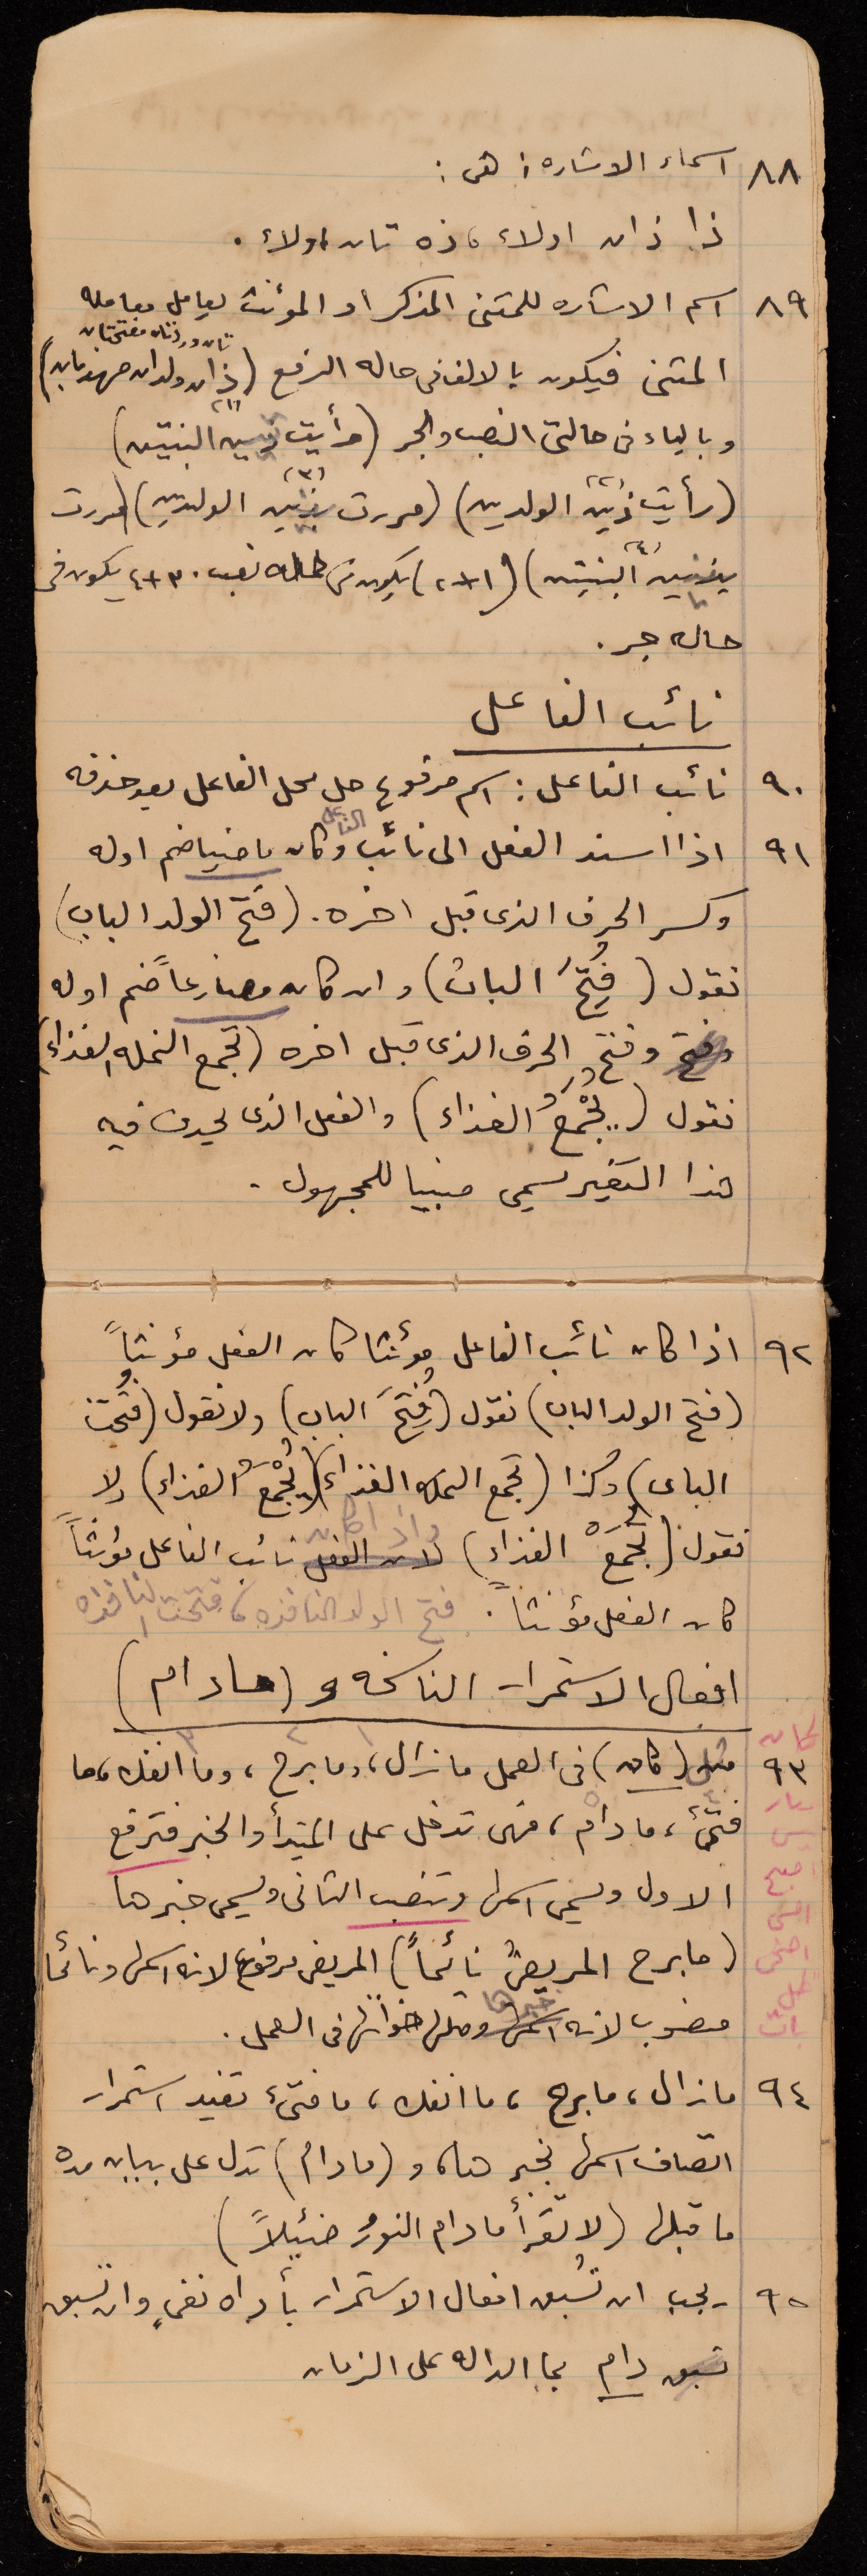 ٨٨ اسماء الاشاره: هى:
ذا ذان اولاء، ذه تان اولاء.
٨٩ اسم الاشاره للمثنى المذكر او المؤنث يعامل معامله
تان وردتان مفتحتان
المثنى فيكون بالالف فى حاله الرفع (ذان ولدان مهذبان)
وبالياء فى حالتى النصب والجر (رأيت البنتين)
(رأيت ذين الولدين) (مررت بذين الولدين) (مررت
البنتين) (١+٢) يكون فى حاله نصب. ٣+٤ يكون فى
حاله جر.
نائب الفاعل
٩٠ نائب الفاعل: اسم مرفوع حل محل الفاعل بعد حذفه
٩١ اذا اسند الفعل الى نائب الفاعل وكان ماضيا ضم اوله
وكسر الحرف الذى قبل اخره. (فتح الولد الباب)
نقول (فُتِحَ البابُ) وان كان مضارعاً ضم اوله
وفتح الحرف الذى قبل اخره (تجمع النمله الغذاء)
نقول (يُجْمَعُ الغذاء) والفعل الذى يحدث فيه
هذا التغير يسمى مبنيا للمجهول.
٩٢ اذا كان نائب الفاعل مؤنثا كان الفعل مؤنثاً
(فتح الولد الباب) نقول (فُتِحَ الباب) ولا نقول (فُتحت
الباب) وكذا (تجمع النمله الغذاء) (يُجْمَعُ الغذاء) ولا
نقول (تُجْمَعُ الغذاء) واذا كان نائب الفاعل مؤنثاً
كان الفعل مؤنثاً. فتح الولد النافذه، فتحت النافذه
افعال الاستمرار الناسخه و (مادام)
٩٣ مثل (كان) فى العمل مازال، ومابرح، وما انفك، ما
فتئ، مادام، فهى تدخل على المبتدأ والخبر فترفع
الاول ويسمى اسمها وتنصب الثانى ويسمى خبرها
(مابرح المريضُ نائماً) المريض مرفوع لانه اسمها ونائما
منصوب لانه خبرها ومثلها اخواتها فى العمل.
كان
صار
ليس
اصبح
امسى
اضحى
ظل
بات
٩٤ مازال، مابرح، ما انفك، ما فتئ تفيد استمرار
اتصاف اسمها بخبرها، و (مادام) تدل على بيان مده
ما قبلها (لا تقرأ مادام النورُ ضئيلاً)
٩٥ يجب ان تُسبق افعال الاستمرار بأداه نفىٍ وان تسبق
دام بما الداله على الزمان